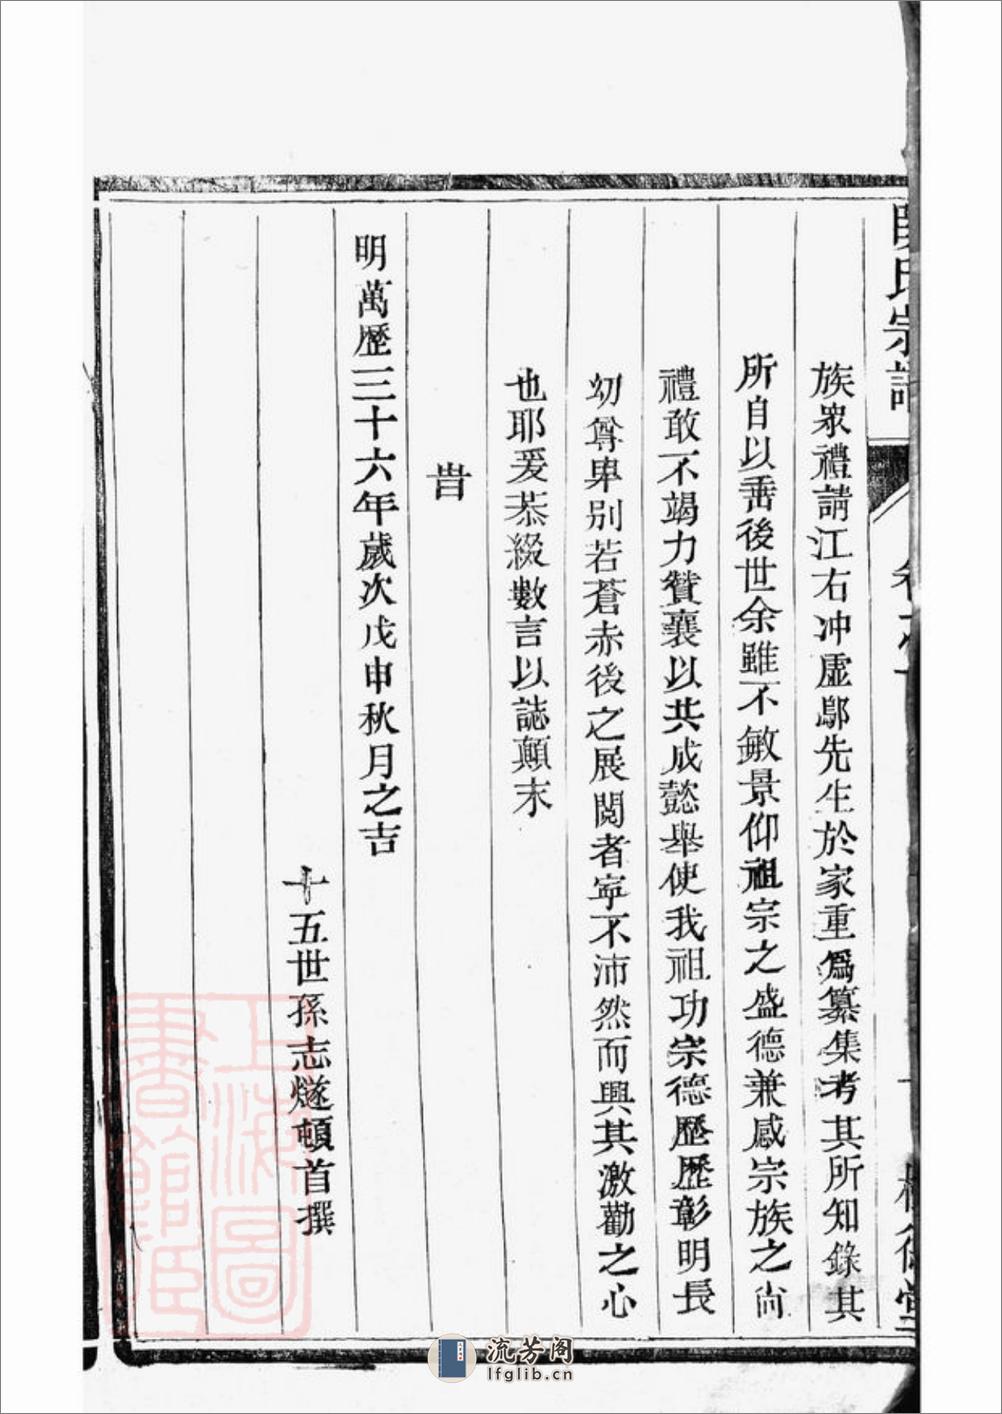 族衆禮請江右冲虛鄢先生於家重爲纂集考其所知錄其
所自以垂後世余雖不敏景仰祖宗之盛德兼感宗族之尚
禮敢不竭力贊襄以共成懿舉使我祖功宗德歷歷彰明長
幼尊卑別若蒼赤後之展閱者寜不沛然而興其激勸之心
也耶爰恭綴數言以誌顛末
旹
明萬歷三十六年歲次戊申秋月之吉
十五世孫志燧頓首撰
上海圖
書館藏
流芳阁
lfglib.cn